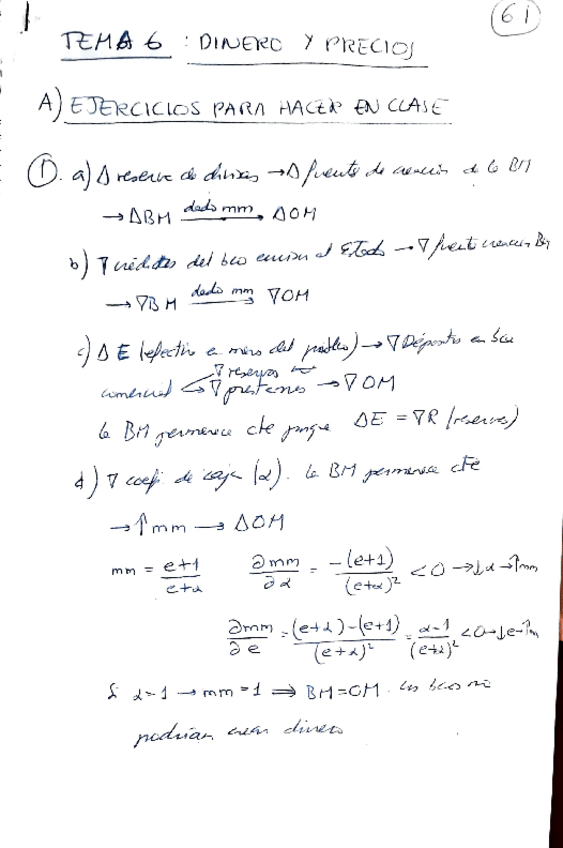 61
TEMA 6 : DINERO Y PRECIOS
A) EJERCICIOS PARA HACER EN CLASE
①. a) Δ reserva de divisas → Δ fuente de creación de la BM
→ ΔBM dado mm → ΔOM
b) ∇ créditos del bco emisor al Estado → ∇ fuente creación BM
→ ∇BM dado mm → ∇OM
c) Δ E (efectivo en manos del público) → ∇ Depósitos en bco
comercial ∇ reservas ∇ préstamos → ∇OM
la BM permanece cte porque ΔE = ∇R (reservas)
d) ∇ coef. de caja (α). la BM permanece cte
→ ↑mm → ΔOM
mm = e+1/e+α ∂mm/∂α = -(e+1)/(e+α)² < 0 → ↓α → ↑mm
∂mm/∂e = (e+α)-(e+1)/(e+α)² = α-1/(e+α)² < 0 → ↓e → ↑m
Si α=1 → mm=1 ⇒ BM=OM. los bcos no
podrían crear dinero